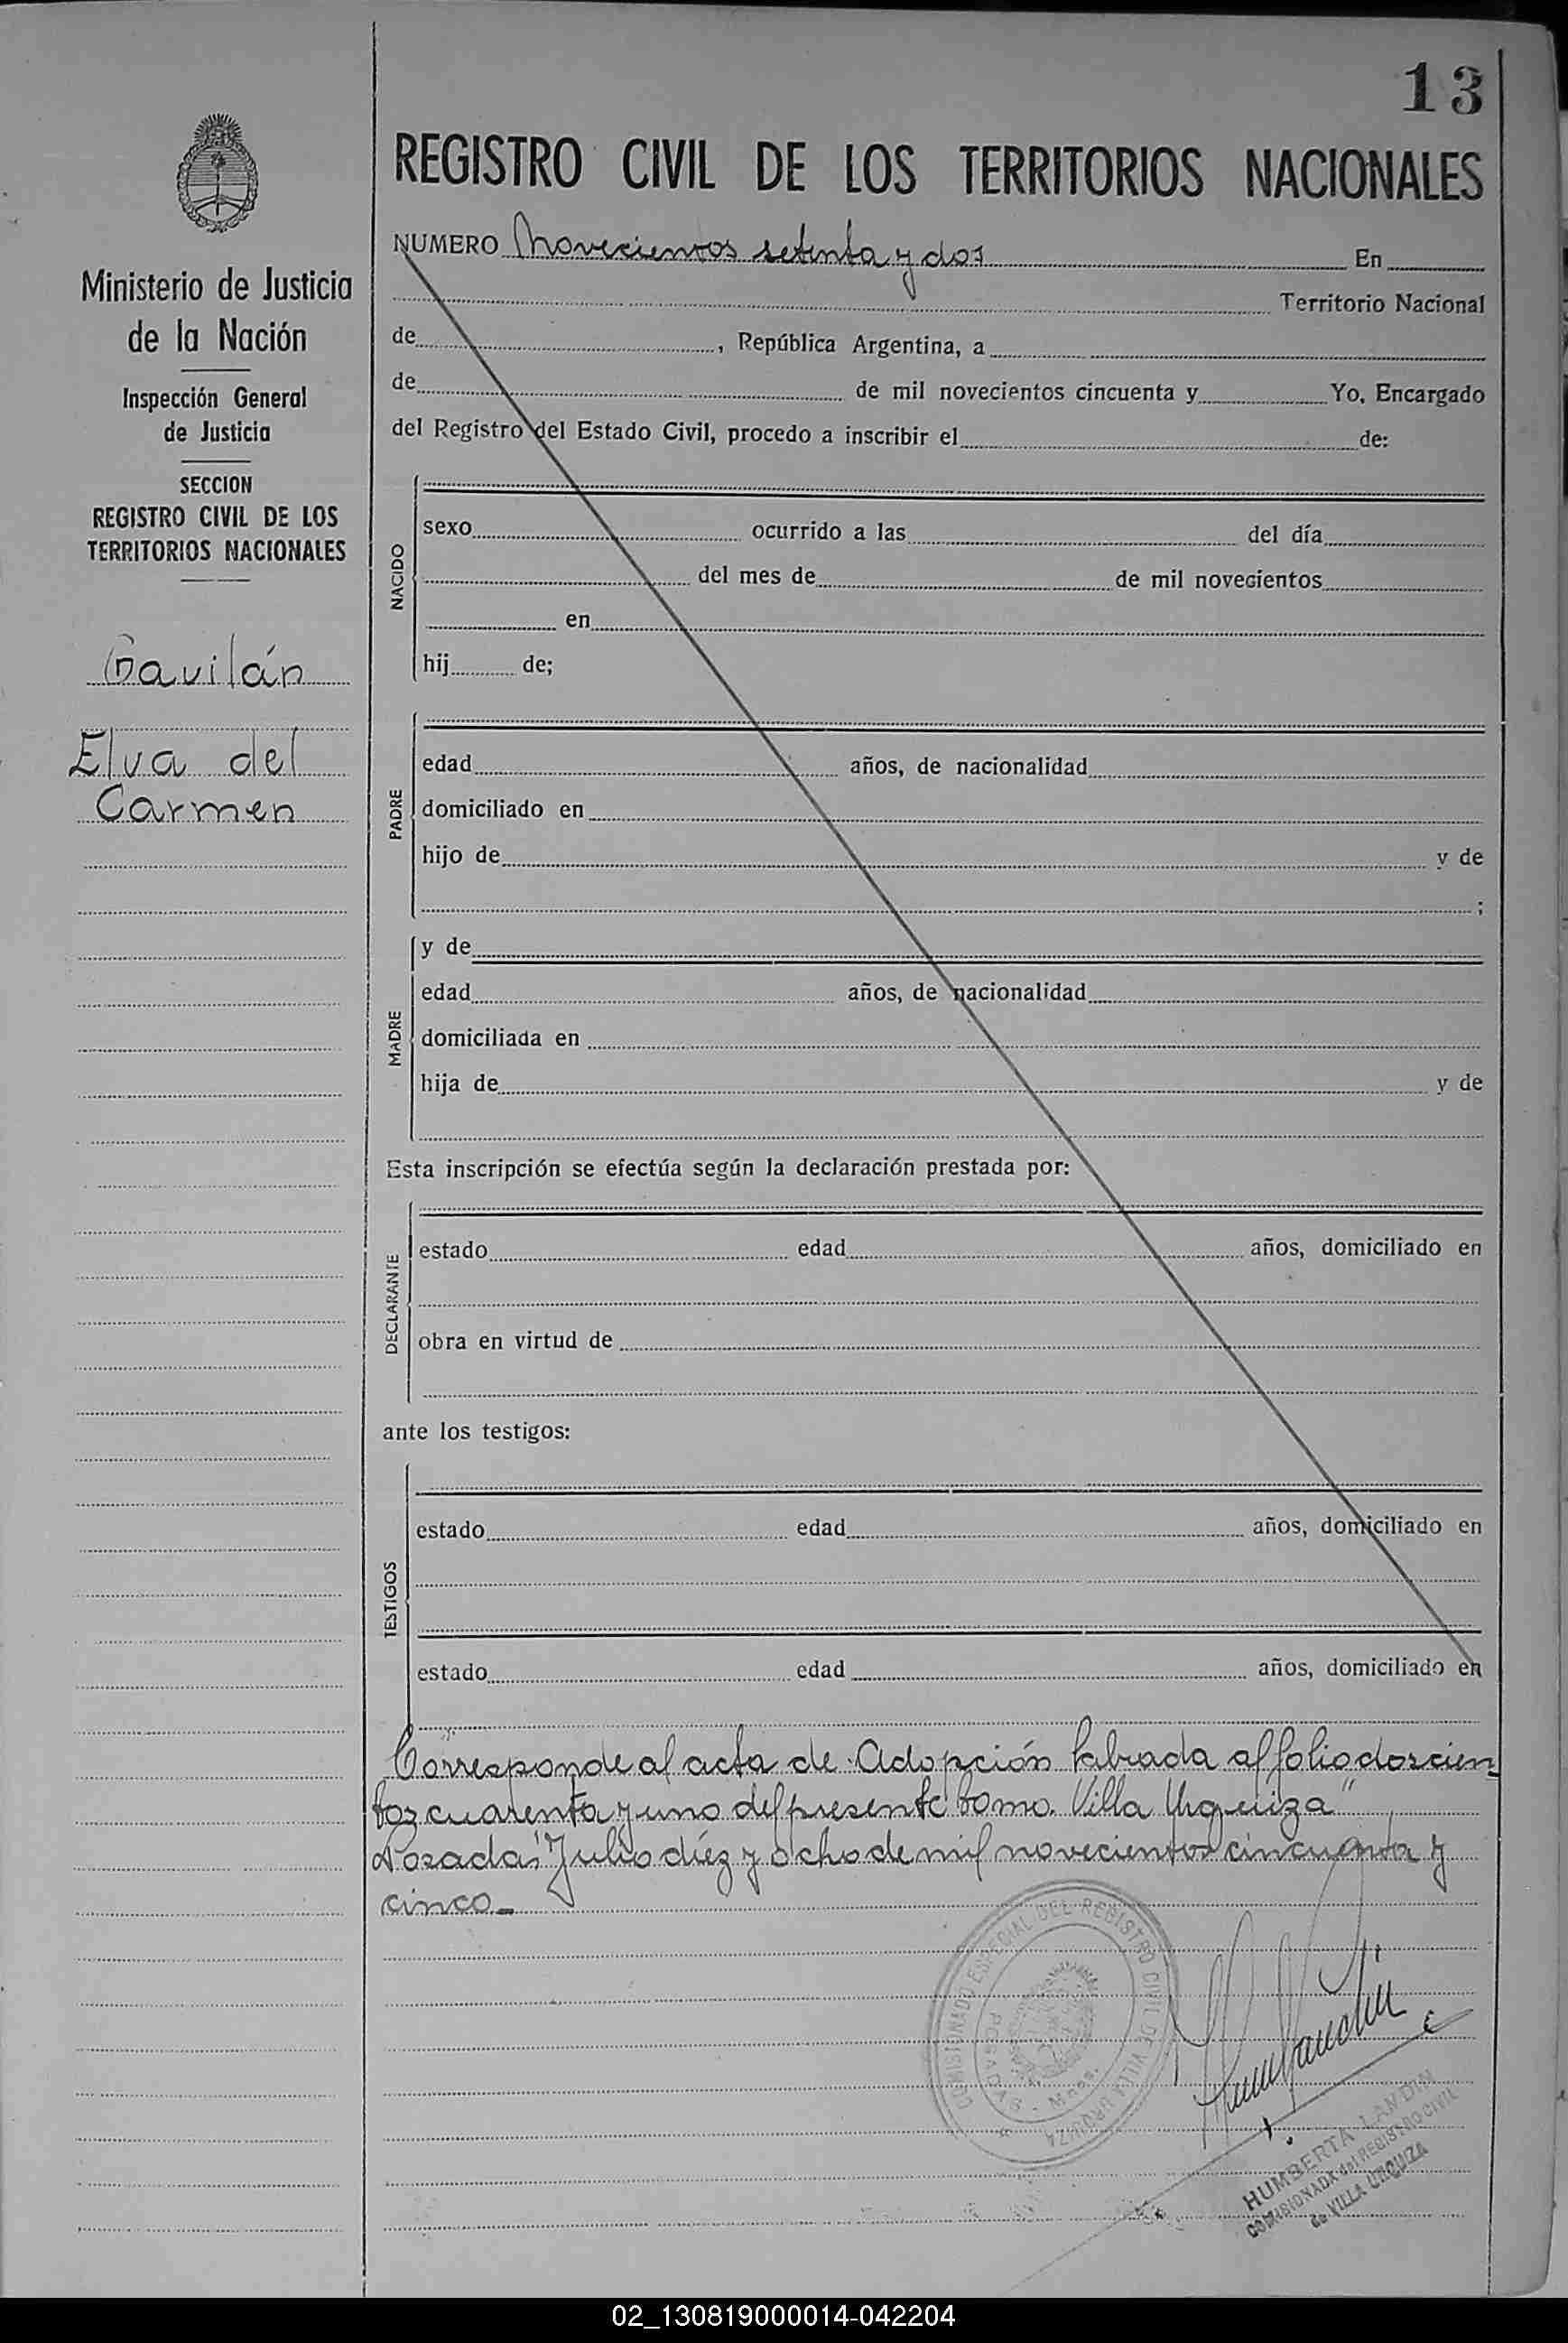 13
REGISTRO CIVIL DE LOS TERRITORIOS NACIONALES
Ministerio de Justicia
de la Nación
Inspección General
de Justicia
SECCION
REGISTRO CIVIL DE LOS
TERRITORIOS NACIONALES
Gavilán
Elva del
Carmen
NUMERO Novecientos setenta y dos En
Territorio Nacional
de , República Argentina, a
de de mil novecientos cincuenta y Yo, Encargado
del Registro del Estado Civil, procedo a inscribir el de:
NACIDO
sexo ocurrido a las del día
del mes de de mil novecientos
en
hij de;
PADRE
edad años, de nacionalidad
domiciliado en
hijo de y de
;
MADRE
y de
edad años, de nacionalidad
domiciliada en
hija de y de
Esta inscripción se efectúa según la declaración prestada por:
DECLARANTE
estado edad años, domiciliado en
obra en virtud de
ante los testigos:
TESTIGOS
estado edad años, domiciliado en
estado edad años, domiciliado en
Corresponde al acta de Adopción labrada al folio doscien
tos cuarenta y uno del presente tomo. Villa Urquiza"
Posadas, Julio diéz y ocho de mil novecientos cincuenta y
cinco.-
COMISIONADO ESPECIAL DEL REGISTRO CIVIL DE VILLA URQUIZA
POSADAS - Mnes.
HUMBERTA LANDIN
COMISIONADA del REGISTRO CIVIL
de VILLA URQUIZA
02_130819000014-042204